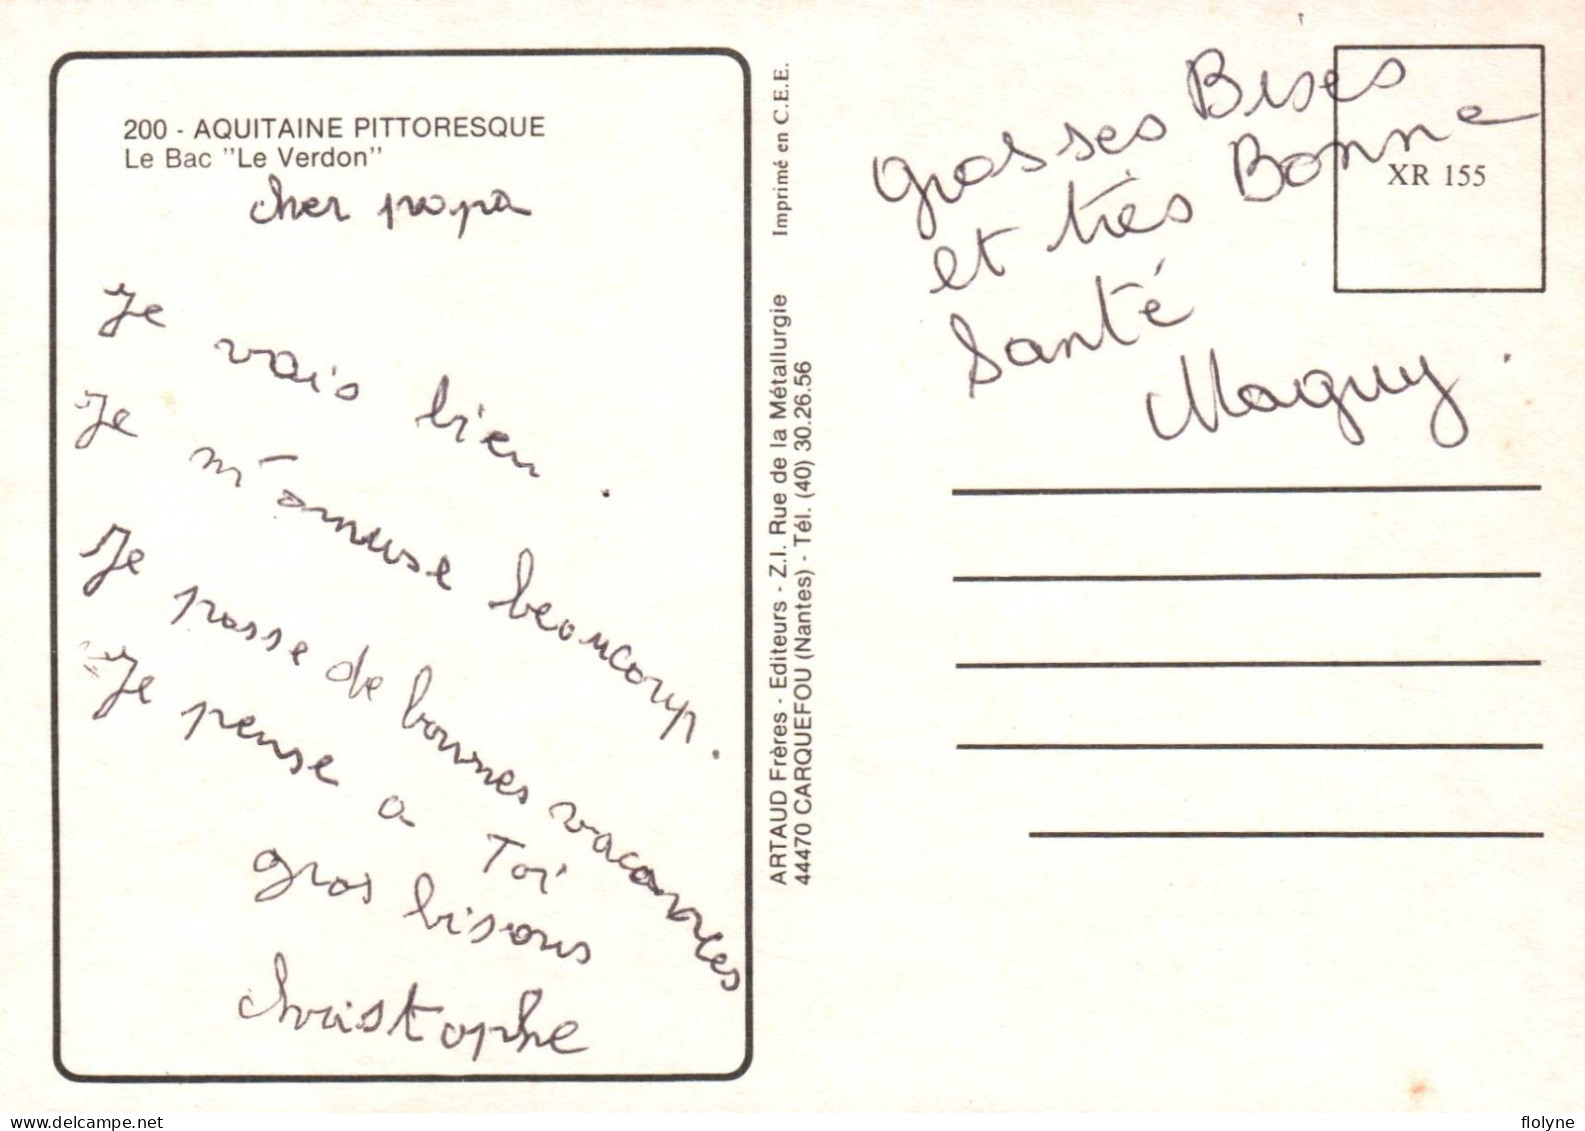 200 - AQUITAINE PITTORESQUE
Le Bac "Le Verdon"
cher papa
Je vais bien.
Je m'amuse beaucoup.
Je passe de bonnes vacances
Je pense a Toi
gros bisous
christophe
Imprimé en C.E.E.
ARTAUD Frères - Editeurs - Z.I. Rue de la Métallurgie
44470 CARQUEFOU (Nantes) - Tél. (40) 30.26.56
grosses Bises
et très Bonne
Santé
Maguy.
XR 155
delcampe.net
flolyne